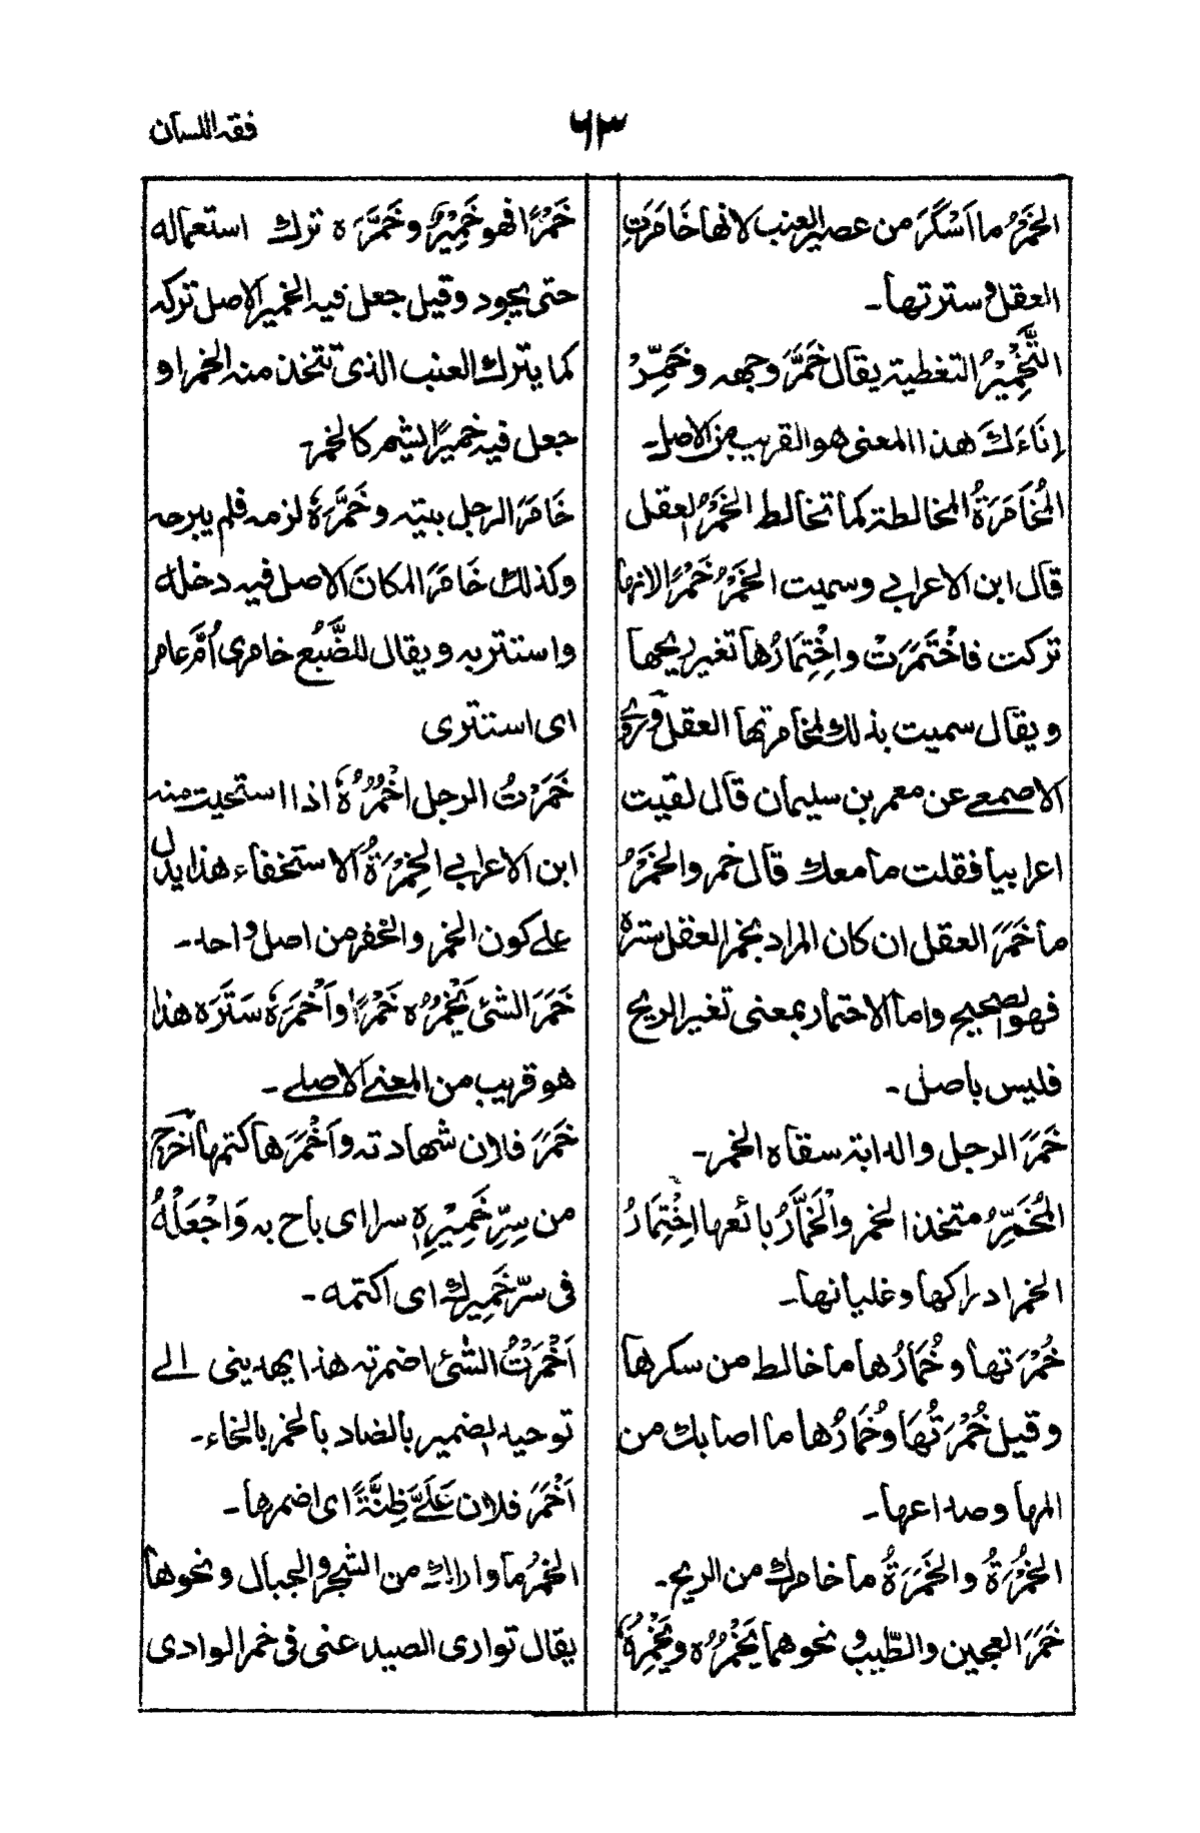 فقه اللسان
٦٣
الخَمْرُ ما اَسْكَرَ من عصير العنب لانها خَامَرَتِ
العقل و سترتها۔
التَّخْمِيْرُ التغطية يقال خَمَّرَ وجهه وخَمِّرْ
اِنَاءَكَ هذا المعنى هو القريب من الاصل۔
المُخَامَرَةُ المخالطة كما تخالط الخَمْرُ العقل
قال ابن الاعرابي وسميت الخَمْرُ خَمْرًا لانها
تركت فاخْتَمَرَتْ واِخْتِمَارُها تغير ريحها
ويقال سميت بذلك لمخامرتها العقل وروى
الاصمعي عن معمر بن سليمان قال لقيت
اعرابيا فقلت ما معك قال خمر والخَمْرُ
ما خَمَرَ العقل ان كان المراد بخمر العقل ستره
فهو الصحيح واما الاختمار بمعنى تغير الريح
فليس باصل۔
خَمَرَ الرجل والدابة سقاه الخمر۔
المُخَمِّرُ متخذ الخمر والْخَمَّارُ بائعها اِخْتِمَارُ
الخمر ادراكها وغليانها۔
خُمْرَتها وخُمَارُها ما خالط من سكرها
وقيل خُمْرَتُهَا وخُمَارُها ما اصابك من
المها وصداعها۔
الخُمْرَةُ والخَمَرَةُ ما خامرك من الريح۔
خَمَرَ العجين والطّيب و نحوهما يَخْمُرُه ويَخْمِرُهٗ
خَمْرًا فهو خَمِيْرٌ وخَمَّرَه ترك استعماله
حتى يجود وقيل جعل فيه الخمير الاصل تركه
كما يترك العنب الذى تتخذ منه الخمر او
جعل فيه خميرًا ليشم كالخمر۔
خَامَرَ الرجل بيته وخَمَّرَهٗ لزمه فلم يبرحه
وكذلك خَامَرَ المكانَ الاصل فيه دخله
واستتر به ويقال للضَّبُع خامرى اُمَّ عامر
اى استترى
خَمَرْتُ الرجل اَخْمُرُهٗ اذا استحيت منه
ابن الاعرابي الخِمْرَةُ الاستخفاء هذا يدل
على كون الخمر والخفر من اصل واحد۔
خَمَرَ الشئ يَخْمُرُه خَمْرًا واَخْمَرَهٗ سَتَرَه هذا
هو قريب من المعنى الاصلى۔
خَمَرَ فلان شهادته واَخْمَرَها كتمها اَخرج
من سِرِّ خَمِيْرِهٖ سرا اى باح به وَاجْعَلْهُ
فى سرّ خَمِيرِك اى اكتمه۔
اَخْمَرْتُ الشئ اضمرته هذا يهدينى الى
توحيد الضمير بالضاد بالخمر بالخاء۔
اَخْمَرَ فلان عَلَيَّ ظِنَّةً اى اضمرها۔
الخَمَرُ ما واراك من الشجر والجبال ونحوها
يقال توارى الصيد عنى فى خمر الوادى